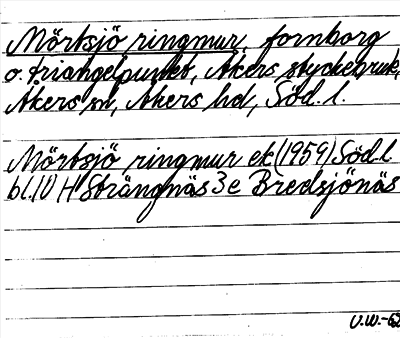 Mörtsjö ringmur, fornborg
o. triangelpunkt, Åkers styckebruk,
Åkers sn, Åkers hd, Söd. l.
Mörtsjö ringmur ek (1959) Söd. l
bl. 10 H Strängnäs 3 e Bredsjönäs
V.W.-62